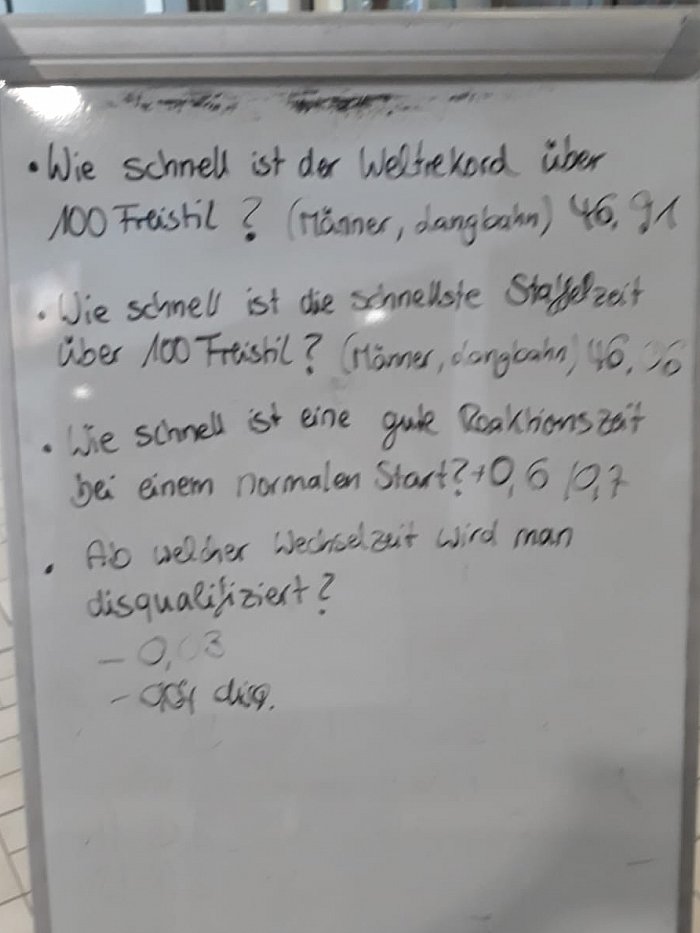 • Wie schnell ist der Weltrekord über
100 Freistil? (Männer, Langbahn) 46,91
• Wie schnell ist die schnellste Staffelzeit
über 100 Freistil? (Männer, Langbahn) 46,06
• Wie schnell ist eine gute Reaktionszeit
bei einem normalen Start? +0,6 /0,7
• Ab welcher Wechselzeit wird man
disqualifiziert?
- 0,03
- disq.